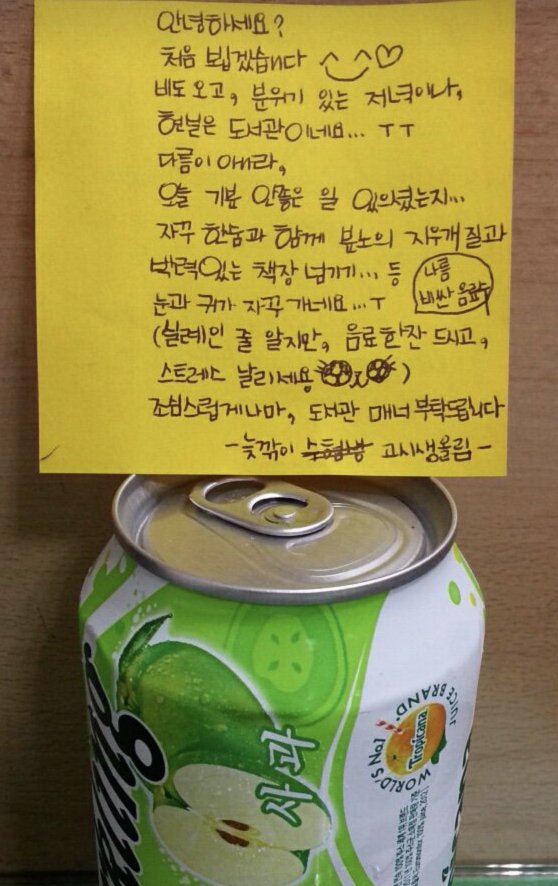 안녕하세요?
처음 뵙겠습니다 ^‿^♡
비도 오고, 분위기 있는 저녁이나,
현실은 도서관이네요... ㅜㅜ
다름이 아니라,
오늘 기분 안좋은 일 있으셨는지...
자꾸 한숨과 함께 분노의 지우개 질과
박력있는 책장 넘기기... 등
나름
비싼 음료수
눈과 귀가 자꾸 가네요...ㅜ
(실례인 줄 알지만, 음료한잔 드시고,
스트레스 날리세요 )
조심스럽게나마, 도서관 매너 부탁드립니다
- 늦깎이 수험생 고시생올림 -
사과
Tropicana
WORLD'S No.1
JUICE BRAND.